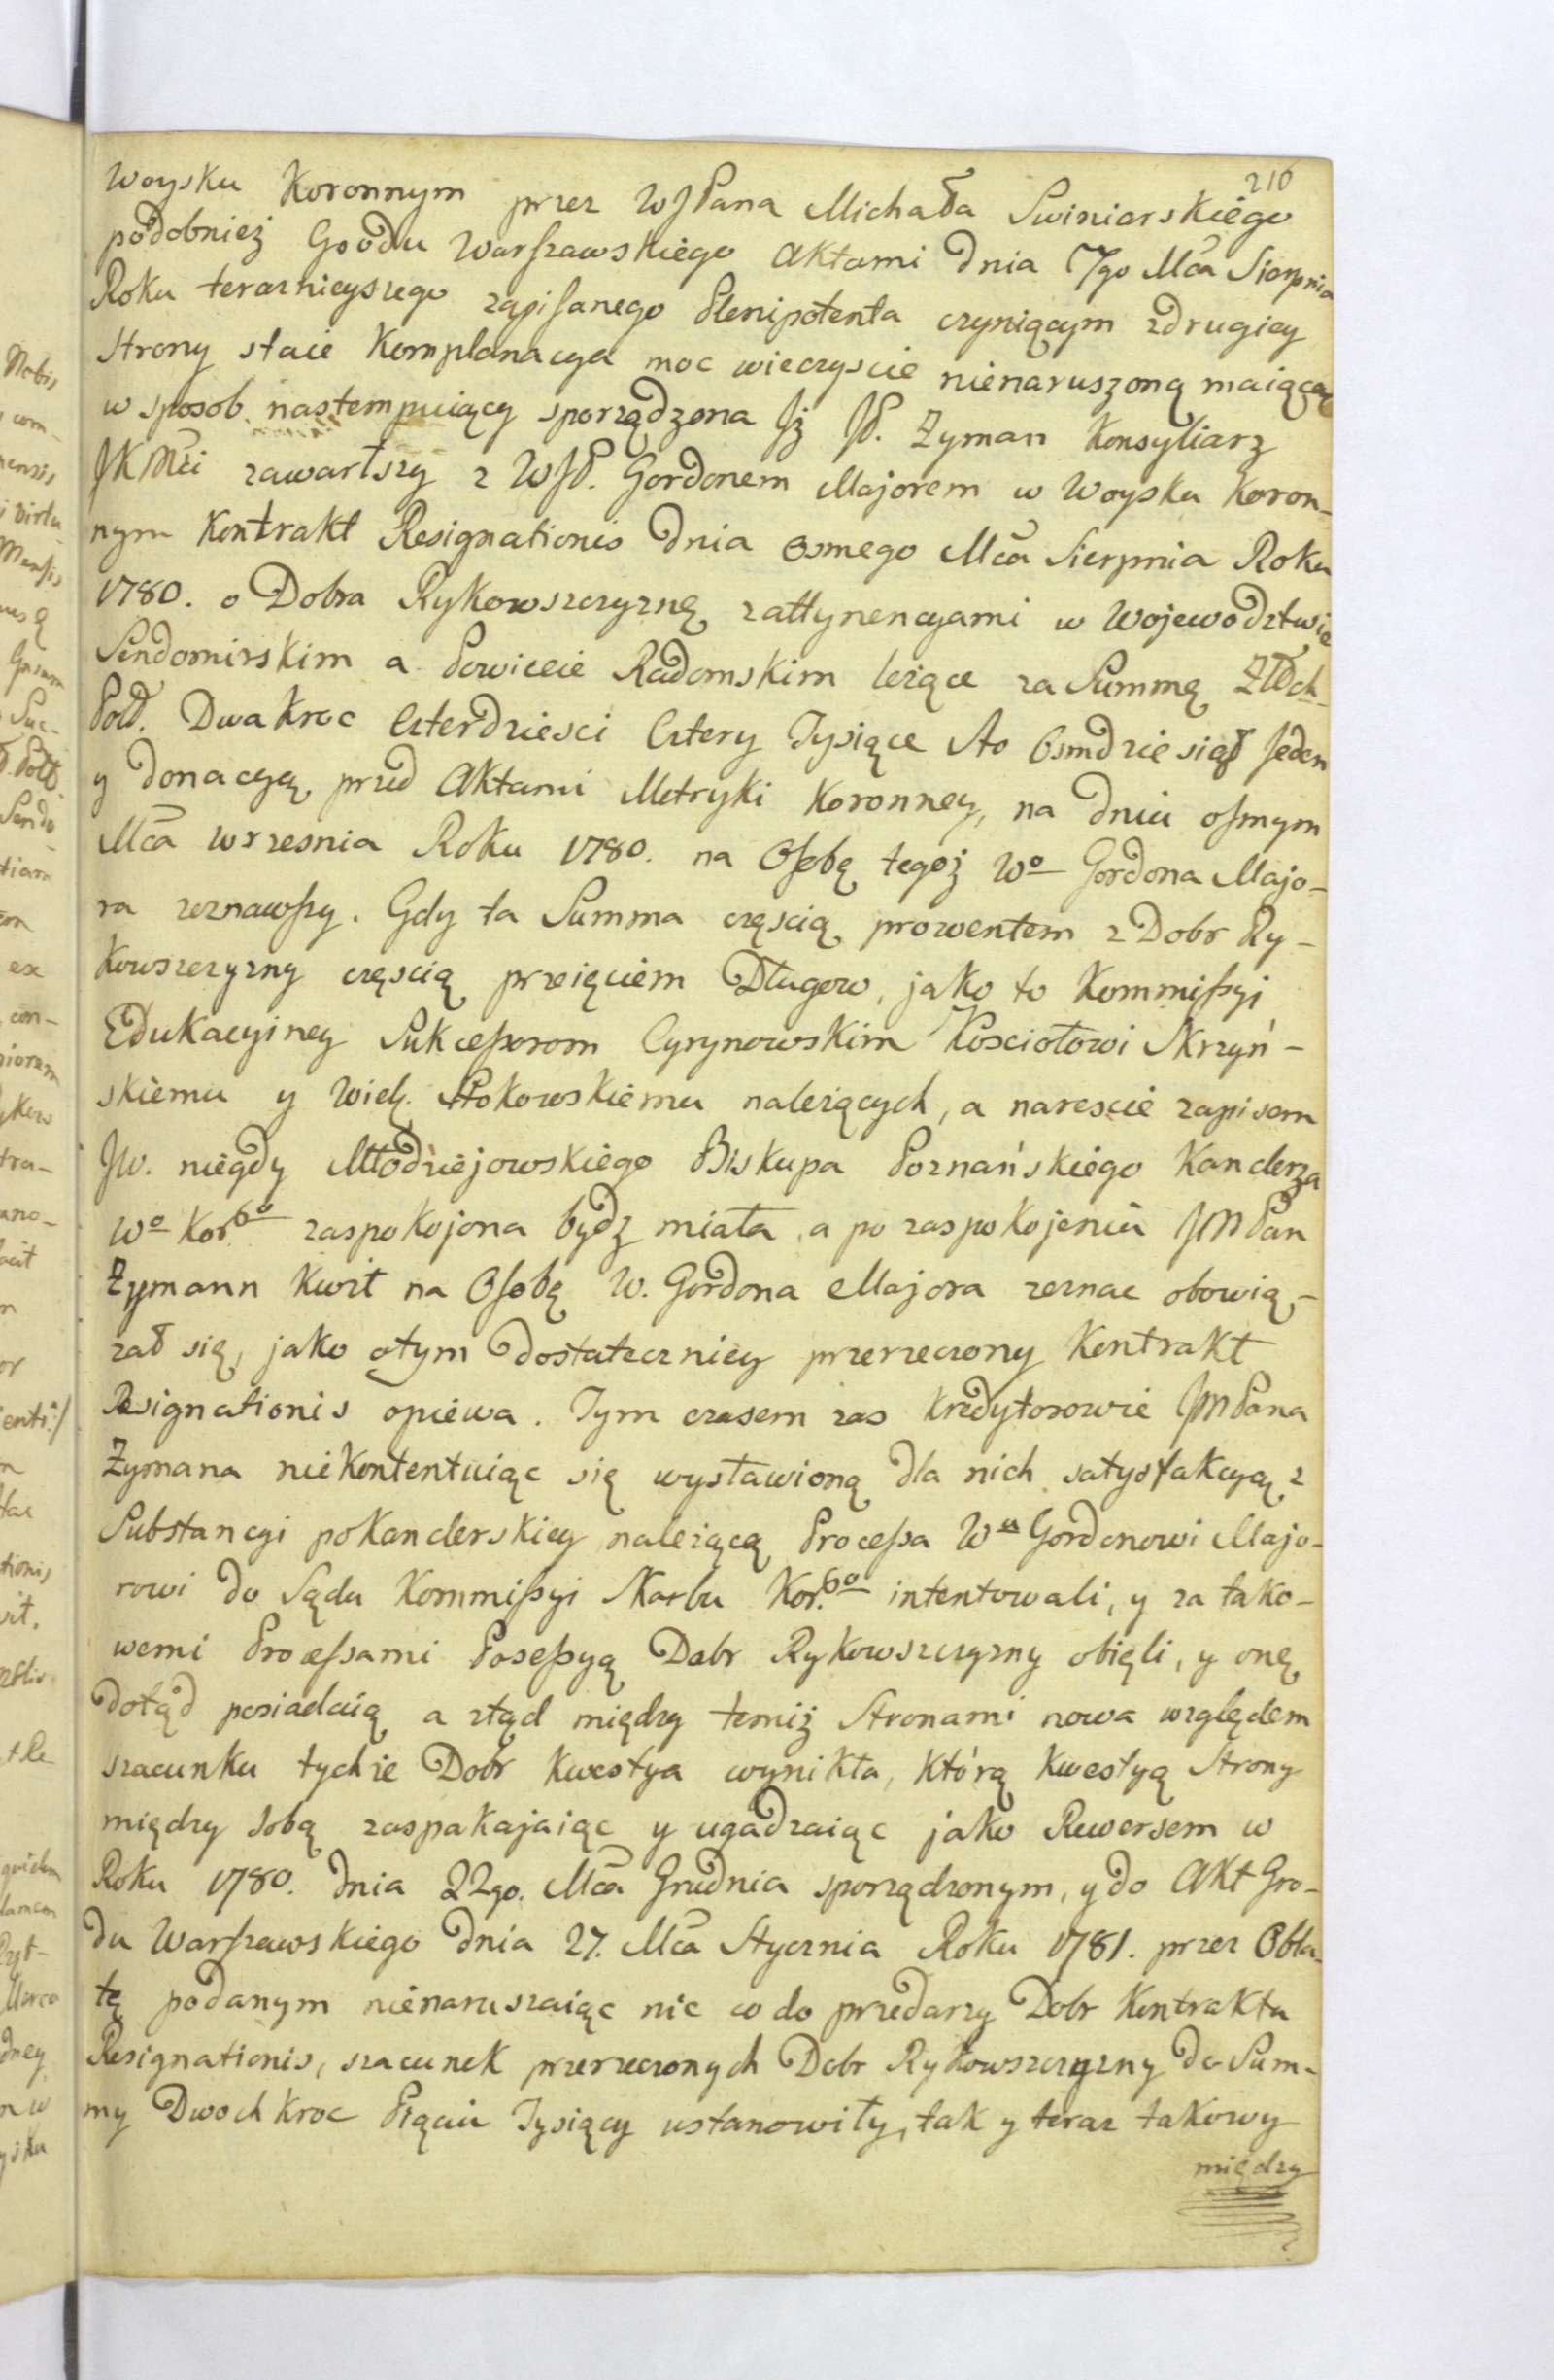 216
Woysku Koronnym przez WJPana Michała Swiniarskiego
podobnież Grodu Warszawskiego Aktami Dnia 17go Mca Sierpnia
Roku teraznieyszego zapisanego Plenipotenta czyniącym zdrugiey
Strony staie Komplanacya moc wieczyscie nienaruszoną maiąca
w sposob nastempuiący sporządzona Jż JP. Zyman Konsyliarz
JKMci zawartszy z WJP. Gordonem Majorem w Woysku Koron-
nym Kontrakt Resignationis Dnia osmego Mca Sierpnia Roku
1780. o Dobra Rykowszczyznę zattynencyami w Wojewodztwie
Sendomirskim a Powiecie Radomskim leżące za Summę Złłch
Poll. Dwakroc Czterdziesci Cztery Tysiące Sto Osmdziesiąt Jeden
y donacyą przed Aktami Metryki Koronney, na dniu osmym
Mca wrzesnia Roku 1780. na Osobę tegoż Wo Gordona Majo-
ra zeznawszy. Gdy ta Summa częscią prowentem z Dobr Ry-
kowszczyzny częscią przeięciem Długow, jako to Kommissyi
Edukacyiney Sukcessorom Cyrynowskim Kosciołowi Skrzyń-
skiemu y Wielk. Stokowskiemu należących, a narescie zapisem
JW. niegdy Młodziejowskiego Biskupa Poznańskiego Kanclerza
Wo Korgo zaspokojona bydz miała, a po zaspokojeniu JMPan
Zymann Kwit na Osobę W. Gordona Majora zeznac obowią-
zał się, jako otym Dostateczniey przerzeczony Kontrakt
Resignationis opiewa. Tym czasem zas Kredytorowie JMPana
Zymana niekontentuiąc się wystawioną dla nich satysfakcyą z
Substancyi pokanclerskiey należącą Processa Wu Gordonowi Majo-
rowi do Sądu Kommissyi Skarbu Korgo intentowali, y za tako-
wemi Processami Possessyą Dobr Rykowszczyzny obięli, y onę
dotąd posiadaią a ztąd między temiż Stronami nowa względem
szacunku tychże Dobr Kwestya wynikła, którą Kwestyą Strony
między sobą zaspakajaiąc y ugadzaiąc jako Rewersem w
Roku 1780. Dnia 22go. Mca Grudnia sporządzonym, y do Akt Gro-
du Warszawskiego Dnia 27. Mca Stycznia Roku 1781. przez Obla-
tę podanym nienaruszaiąc nic co do przedarzy Dobr Kontraktu
Resignationis, szacunek przerzeczonych Dobr Rykowszczyzny do Sum-
my Dwoch kroc Pięciu Tysięcy ustanowiły, tak y teraz takowy
między